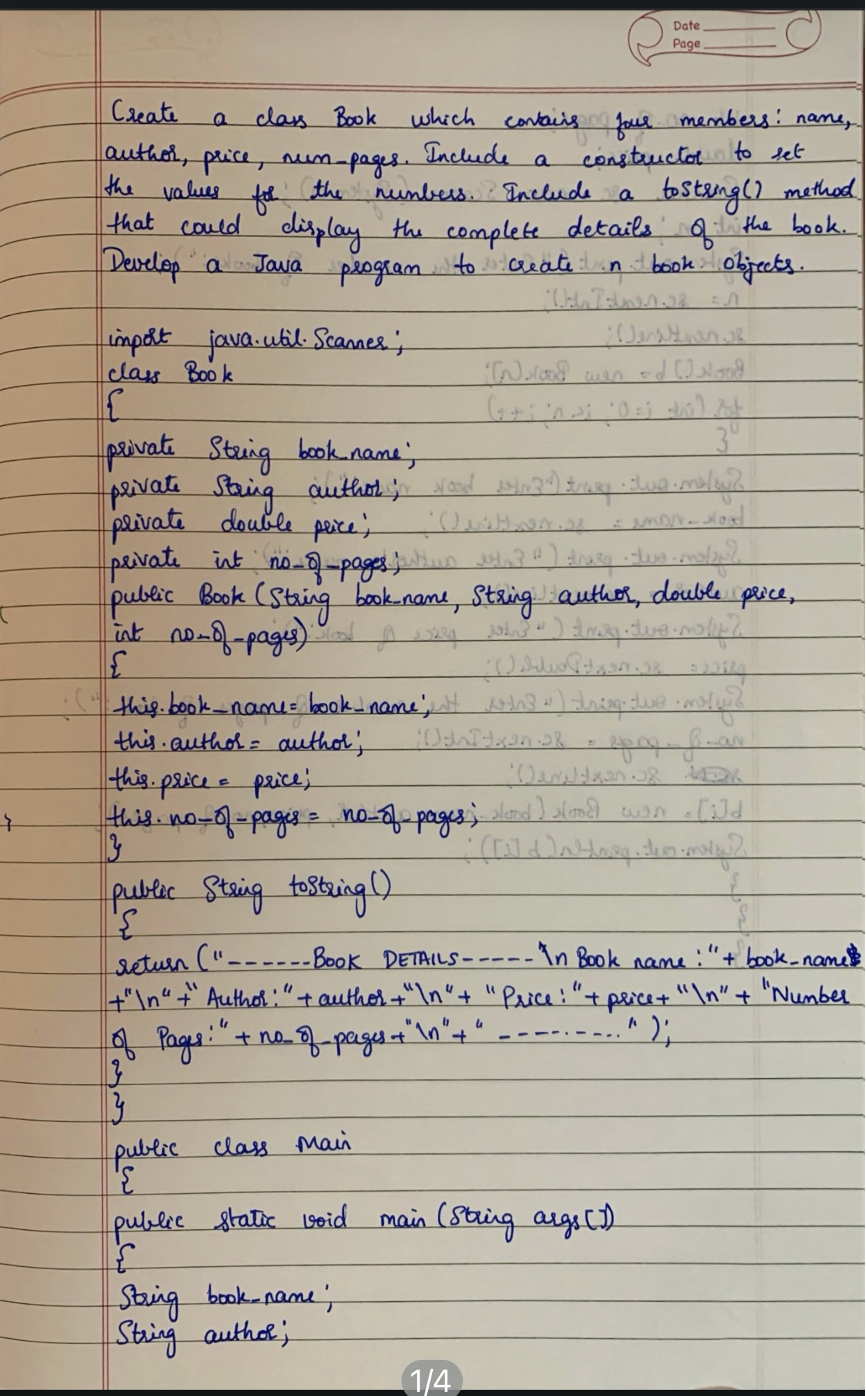 Date
Page
Create a class Book which contains four members: name,
author, price, num_pages. Include a constructor to set
the values for the numbers. Include a toString() method
that could display the complete details of the book.
Develop a Java program to create n book objects.
import java.util.Scanner;
class Book
{
private String book_name;
private String author;
private double price;
private int no_of_pages;
public Book (String book_name, String author, double price,
int no_of_pages)
{
this.book_name= book_name;
this.author= author;
this.price= price;
this.no_of_pages= no_of_pages;
}
public String toString()
{
return ("------Book DETAILS-----\n Book name:"+ book_name
+"\n"+"Author:"+author+"\n"+ "Price:"+price+"\n"+"Number
of Pages:"+ no_of_pages+"\n"+"---------");
}
}
public class Main
{
public static void main (String args[])
{
String book_name;
String author;
1/4